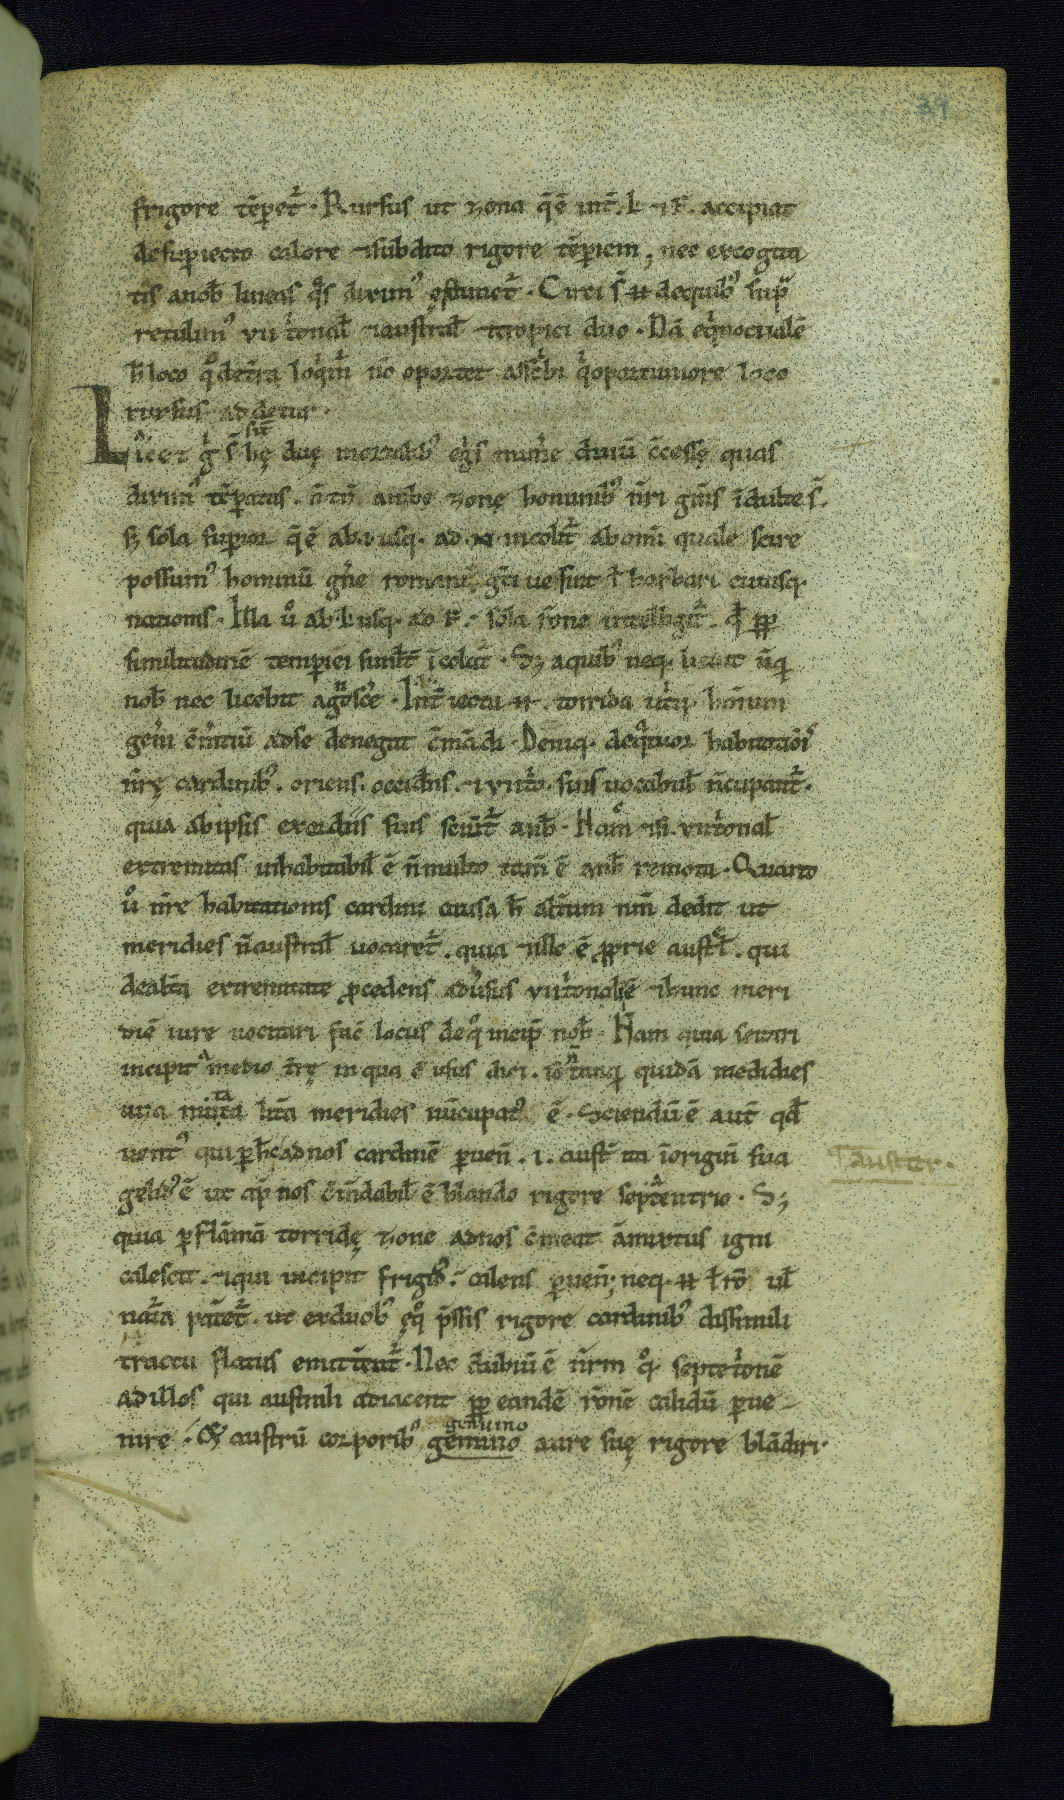 39
frigore tēpet᷑. Rursus ut zona q̄ ē int̄. L ⁊ F. accipiat
desup̱iecto calore ⁊ subdito rigore tēp̱iem, nec excogita
tis a nob̄ lineas q̊s dixim᾽ estimet᷑. Circi s̄ .n. de quib᾽ sup̱
retulim᾽ vii t᷑onal̄ ⁊ austral̄ ⁊ tropici duo. Nā eq̇noctialē
h̄ loco q̊ de t̄ra loq̇m᷑ nō oportet ascͥbi q̇ oportuniore loco
rursus addetur.
Licet g̊ s̄ sīt hę duę mortalib᾽ egͥs mun̄e diuū c̄cessę quas
dixim᾽ tēp̱atas. ñ tñ ambe zonę hominib᾽ nr̄i gn̄is īdulte s̄.
sꝫ sola sup̱ior q̄ ē ab .i. usq. ad incolit᷑ ab om̄i quale scire
possum᾽ hominū gn̄e romani gͣci ue sint ł barbari cuiusq.
nationis. Illa u̇ ab. L usq. ad F. sola rōne intelligit᷑. qd̄ ꝓp̱
similitudinē temperiei simil̄t īcolat᷑. Sꝫ a quib᾽ neq. licuit ūq̇
nob̄ nec licebit agnosc̄e. Int̄iecta .n. torrida ut̊q hōinum
gen̄i c̄m̄tiū ad se denegat c̄mādi. Deniq. de q̇tuor habitatiōis
nr̄ę cardinib᾽. oriens. occid̄ns. ⁊ vii t᷑o. suis uocabul̄ ñcupant᷑.
quia ab ipsis exordiis suis sciūt᷑ a nob̄. Nam ⁊ si. vii t᷑onal̄
extremitas inhabitabil̄ ē n̄ multo tam̄ ē a nob̄ remota. Quarto
u̇ nr̄e habitationis cardini causa h̄ alt̄um nom̄ dedit ut
meridies n̄ austral̄ uocaret᷑. quia ⁊ ille ē ꝓprie austͣl̄. qui
de alt̄a extremitate ꝓcedens adu̇sus vii t᷑onalē ē ⁊ hunc meri
diē iure uocitari fac̄ locus de q̊ incip̄ nob̄. Nam quia sentiri
incipit a medio t̄rę in qua ē usus diei. iō tanq̇ quidā medidies
una mutata litt̄a meridies nūcupat᾽ ē. Sciendū ē aut̄ qd̄
uent᾽ qui p̱ h̄c ad nos cardinē p̱uen̄. i. aust̄ ita ī origin̄ sua
gelid᾽ ē ut ap̱ nos c̄m̄dabil̄ ē blando rigore septētrio. Sꝫ
quia p̱ flāmā torridę zone ad nos c̄meat āmixtus igni
calescit. ⁊ qui incipit frigid᾽. calens p̱uen̄; neq. .n. ł rō ul̄
nat᷑a patet᷑. ut ex duob᾽ ęq̊ p̄ssis rigore cardinib᾽ dissimili
tractu flatus emittent᷑. Nec dubiū ē nr̄m q̊q septet᷑onē
ad illos qui australi adiacent ꝓp̱ eandē rōnē calidū p̱ue-
nire. Et austrū corporib᾽ gemino genuino aure suę rigore blādiri.
⁊ auster.